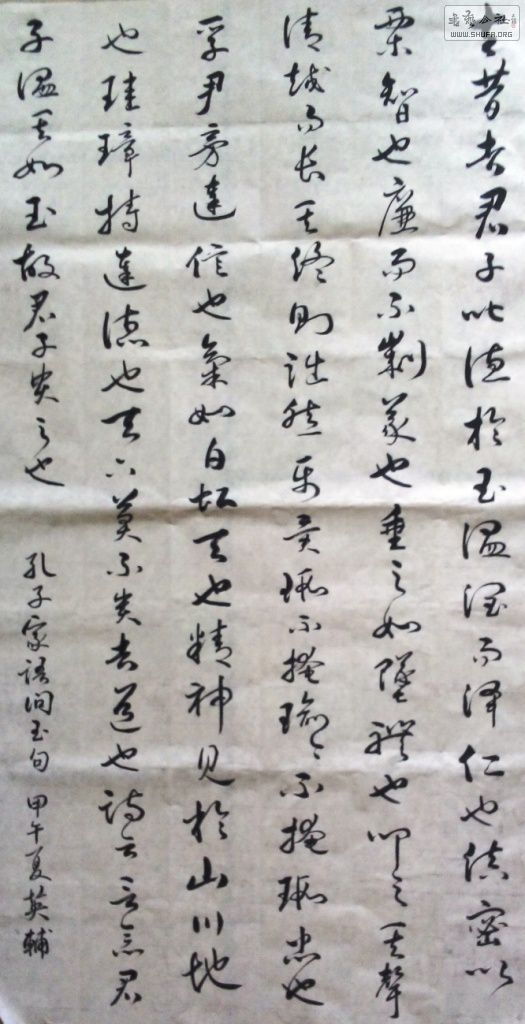 夫昔者君子比德於玉温潤而澤仁也縝密以
栗智也廉而不劌義也垂之如墜禮也叩之其聲
清越而長其終則詘然樂矣瑕不掩瑜〻不掩瑕忠也
孚尹旁達信也氣如白虹天也精神見於山川地
也珪璋特達德也天下莫不貴者道也詩云言念君
子温其如玉故君子貴之也
孔子家語問玉句 甲午夏英輔
書藝公社
WWW.SHUFA.ORG